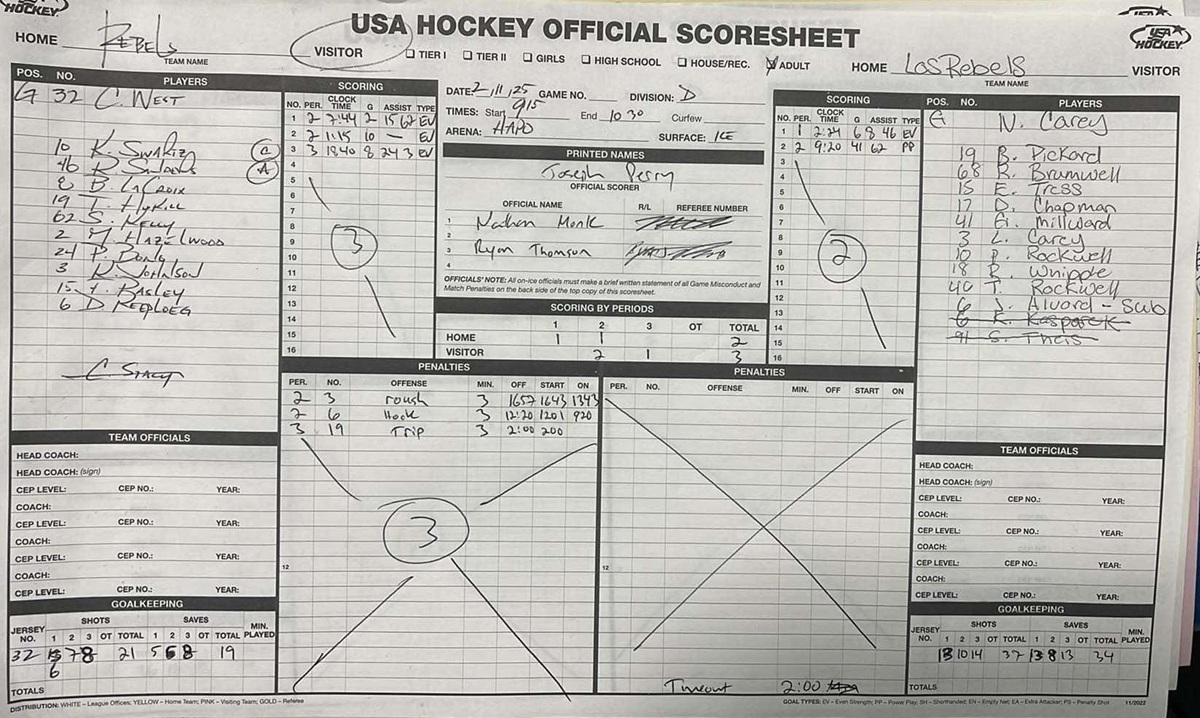 USA HOCKEY OFFICIAL SCORESHEET
HOCKEY
USA HOCKEY
HOME Rebels VISITOR
TEAM NAME
☐ TIER I ☐ TIER II ☐ GIRLS ☐ HIGH SCHOOL ☐ HOUSE/REC. ☑ ADULT
HOME Los Rebels VISITOR
TEAM NAME
POS. NO. PLAYERS
G 32 C. West
10 K. Swartz C
46 A
8 B. LaCroix
19 T.
62 S. Kelly
2 M. Hazelwood
24 P. Dong
3 R. Johnson
15 Pasley
6 D. Reploeg
C. Stacy
SCORING
NO. PER. CLOCK TIME G ASSIST TYPE
1 2 7:44 2 15 62 EV
2 2 1:15 10 — EV
3 3 1840 8 24 3 EV
4
5
6
7
8
9
10
11
12
13
14
15
16
3
DATE: 2/11/25 GAME NO. DIVISION: D
TIMES: Start 915 End 1030 Curfew
ARENA: HAPO SURFACE: ICE
PRINTED NAMES
Joseph Perry
OFFICIAL SCORER
OFFICIAL NAME R/L REFEREE NUMBER
1 Nathan Monk
2
3 Ryan Thomson
4
OFFICIALS' NOTE: All on-ice officials must make a brief written statement of all Game Misconduct and
Match Penalties on the back side of the top copy of this scoresheet.
SCORING BY PERIODS
1 2 3 OT TOTAL
HOME 1 1 2
VISITOR 2 1 3
SCORING
NO. PER. CLOCK TIME G ASSIST TYPE
1 1 2:24 6 8 46 EV
2 2 9:20 41 62 PP
3
4
5
6
7
8
9
10
11
12
13
14
15
16
2
POS. NO. PLAYERS
G N. Carey
19 B. Pickard
68 R. Brumwell
15 E. Tress
17 D. Chapman
41 G. Millward
3 L. Carey
10 P. Rockwell
18 R. Whipple
40 T. Rockwell
6 J. Alvord - Sub
6 K. Kasparek
91 S. Theis
PENALTIES
PER. NO. OFFENSE MIN. OFF START ON
2 3 rough 3 1657 1643 1343
2 6 Hook 3 12:20 1201 920
3 19 Trip 3 2:00 200
3
12
PENALTIES
PER. NO. OFFENSE MIN. OFF START ON
12
Timeout 2:00
TEAM OFFICIALS
HEAD COACH:
HEAD COACH: (sign)
CEP LEVEL: CEP NO.: YEAR:
COACH:
CEP LEVEL: CEP NO.: YEAR:
COACH:
CEP LEVEL: CEP NO.: YEAR:
COACH:
CEP LEVEL: CEP NO.: YEAR:
GOALKEEPING
SHOTS SAVES
JERSEY NO. 1 2 3 OT TOTAL 1 2 3 OT TOTAL MIN. PLAYED
32 7 8 21 5 6 8 19
6
TOTALS
TEAM OFFICIALS
HEAD COACH:
HEAD COACH: (sign)
CEP LEVEL: CEP NO.: YEAR:
COACH:
CEP LEVEL: CEP NO.: YEAR:
COACH:
CEP LEVEL: CEP NO.: YEAR:
COACH:
CEP LEVEL: CEP NO.: YEAR:
GOALKEEPING
SHOTS SAVES
JERSEY NO. 1 2 3 OT TOTAL 1 2 3 OT TOTAL MIN. PLAYED
13 10 14 37 13 8 13 34
TOTALS
DISTRIBUTION: WHITE – League Offices; YELLOW – Home Team; PINK – Visiting Team; GOLD – Referee
GOAL TYPES: EV – Even Strength; PP – Power Play; SH – Shorthanded; EN – Empty Net; EA – Extra Attacker; PS – Penalty Shot 11/2022